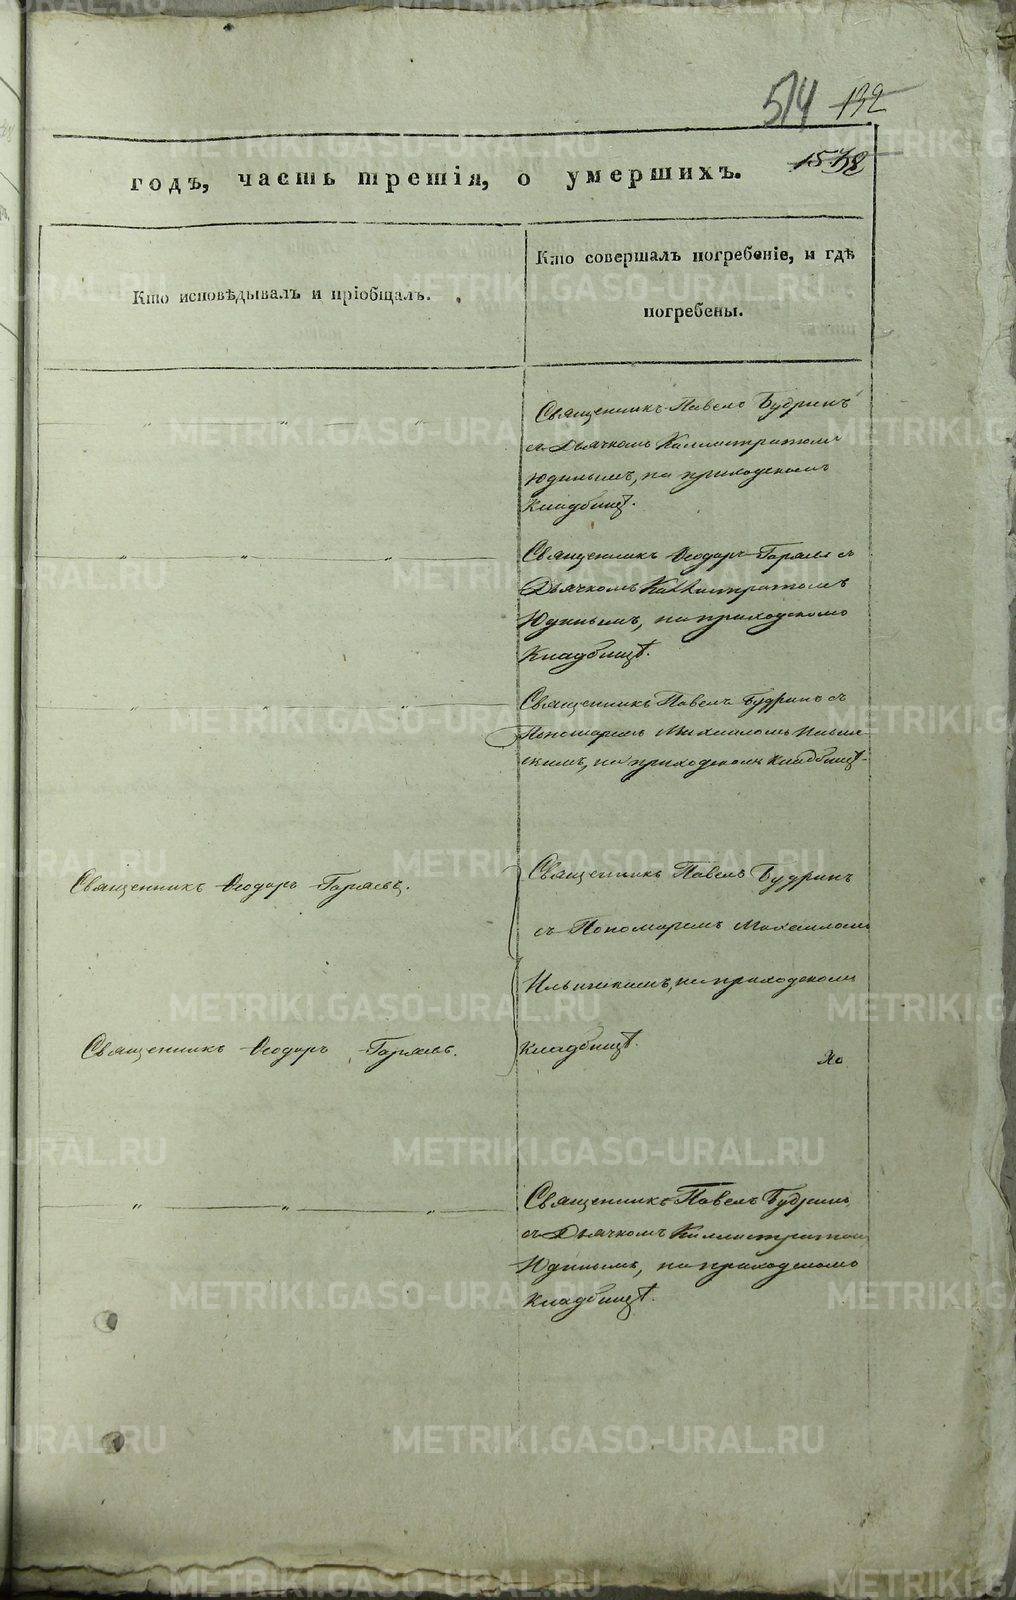 514 132
1538
годъ, часть третія, о умершихъ.
Кто исповѣдывалъ и пріобщалъ.
Кто совершалъ погребеніе, и гдѣ
погребены.
Священникъ Павелъ Будринъ
съ Дьячкомъ Каллистратомъ
Юдинымъ, на приходскомъ
Кладбищѣ.
Священникъ Ѳеодоръ Гаряевъ съ
Дьячкомъ Каллистратомъ
Юдинымъ, на приходскомъ
Кладбищѣ.
Священникъ Павелъ Будринъ съ
Пономаремъ Михаиломъ Ильин-
скимъ, на приходскомъ Кладбищѣ.
Священникъ Ѳеодоръ Гаряевъ.
Священникъ Павелъ Будринъ
съ Пономаремъ Михаиломъ
Ильинскимъ, на приходскомъ
Кладбищѣ.
Священникъ Ѳеодоръ Гаряевъ.
Священникъ Павелъ Будринъ
съ Дьячкомъ Каллистратомъ
Юдинымъ, на приходскомъ
Кладбищѣ.
METRIKI.GASO-URAL.RU